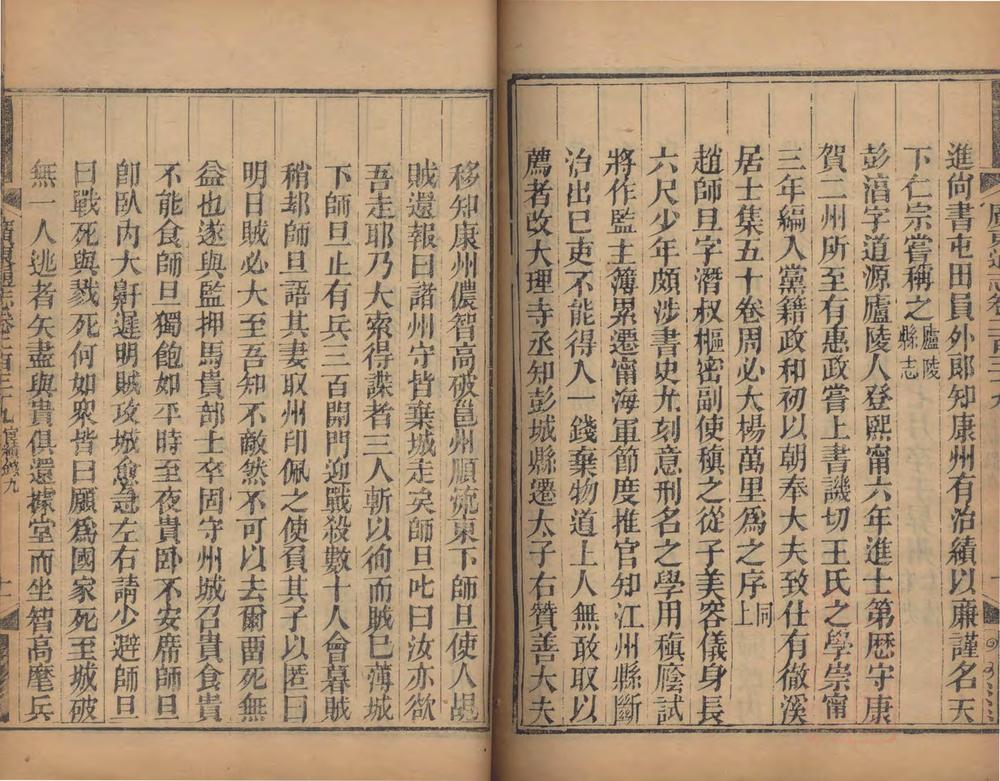 進尙書屯田員外郞知康州有治績以廉謹名天
下仁宗嘗稱之廬陵縣志
彭滔字道源廬陵人登熙甯六年進士第歷守康
賀二州所至有惠政嘗上書譏切王氏之學崇甯
三年編入黨籍政和初以朝奉大夫致仕有徹溪
居士集五十卷周必大楊萬里爲之序同上
趙師旦字潛叔樞密副使稹之從子美容儀身長
六尺少年頗涉書史尤刻意刑名之學用稹廕試
將作監主簿累遷甯海軍節度推官知江州縣斷
治出已吏不能得入一錢棄物道上人無敢取以
薦者改大理寺丞知彭城縣遷太子右贊善大夫
移知康州儂智高破邕州順流東下師旦使人覘
賊還報曰諸州守皆棄城走矣師旦叱曰汝亦欲
吾走耶乃大索得諜者三人斬以徇而賊已薄城
下師旦止有兵三百開門迎戰殺數十人會暮賊
稍却師旦語其妻取州印佩之使負其子以匿曰
明日賊必大至吾知不敵然不可以去爾畱死無
益也遂與監押馬貴部士卒固守州城召貴食貴
不能食師旦獨飽如平時至夜貴卧不安席師旦
卽臥內大鼾遲明賊攻城愈急左右請少避師旦
曰戰死與戮死何如衆皆曰願爲國家死至城破
無一人逃者矢盡與貴俱還據堂而坐智高麾兵
廣東通志卷二百三十九 宦績錄九
十一